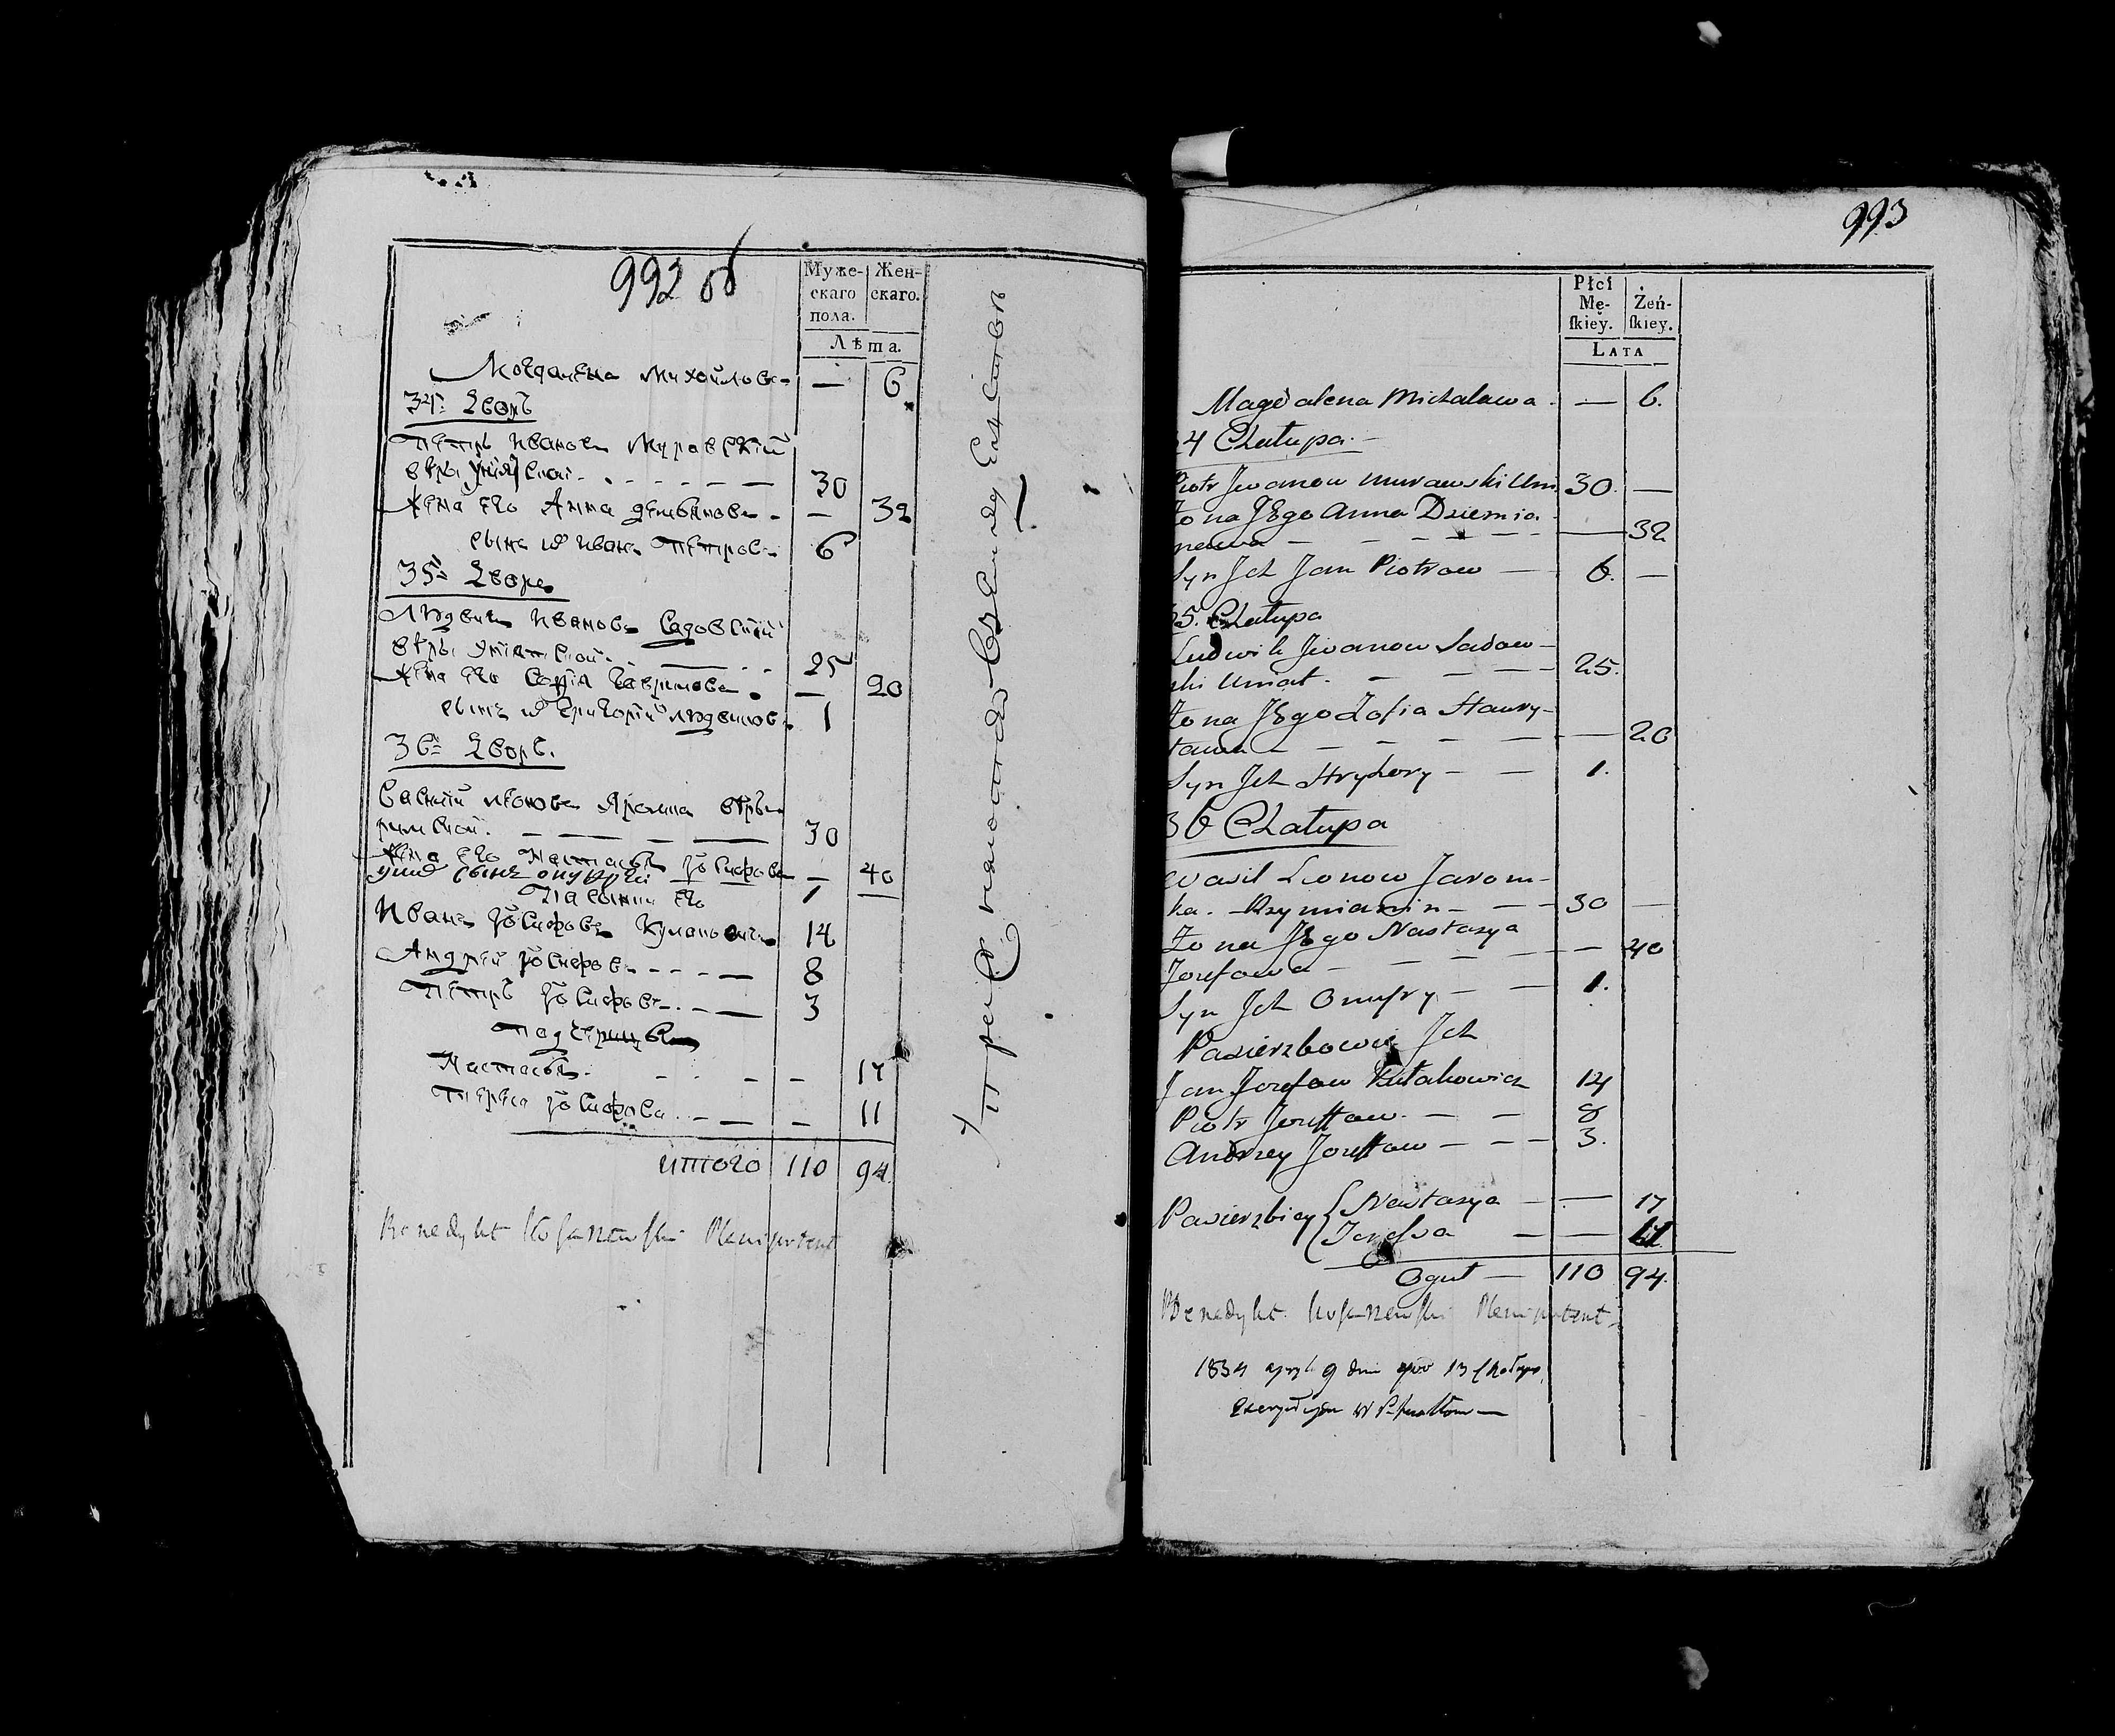 992 об
Муже- Жен-
скаго скаго.
пола.
Лѣта.
Магдалена Михайлова — 6
34й Дворъ
Петръ Ивановъ Муравскій
вѣры Уніятской 30
Жена его Анна Демьянова — 32
сынъ их Иванъ Петровъ 6
35й Дворъ
Людвикъ Ивановъ Садовскій
вѣры уніятской 25
Жена его Софія Гаврилова — 20
сынъ их Григорій Людвиковъ 1
36й Дворъ.
Василій Леоновъ Яромка вѣры
римской. 30
Жена его Настасья Іосифова — 40
сынъ Онуфрій 1 —
Пасынки его
Иванъ Іосифовъ Кулаковичъ 14
Андрей Іосифовъ 8
Петръ Іосифовъ 3
Падчерицы
Настасья — 17
Іосифова — 11
итого 110 94
Benedykt Plenipotent
993
Płci
Mę- Żeń-
skiey. skiey.
LATA
Magdalena Michalawa — 6.
34 Chałupa
Piotr Jwanow Murawski Uni 30. —
Żona JEgo Anna Dziemia
nowa — 32
Syn Jch Jan Piotrow 6. —
35. Chałupa
Ludwik Jwanow Sadow-
ski Uniat. 25.
Żona JEgo Zofia Hawry-
łowa — 20
Syn Jch Hryhory 1.
36 Chałupa
Wasil Leonow Jarom-
ka. Rzymianin 30 —
Żona JEgo Nastasya
Jozefowa — 40
Syn Jch Onufry 1.
Pasierzbowie Jch
Jan Jozefow Kułakowicz 14
Piotr Jozeffow 8
Andrzey Jozeffow 3.
Pasierzbicy Nastasya — 17
— 11
Oguł 110 94.
Benedykt Plenipotent
1834 9 dnia 13